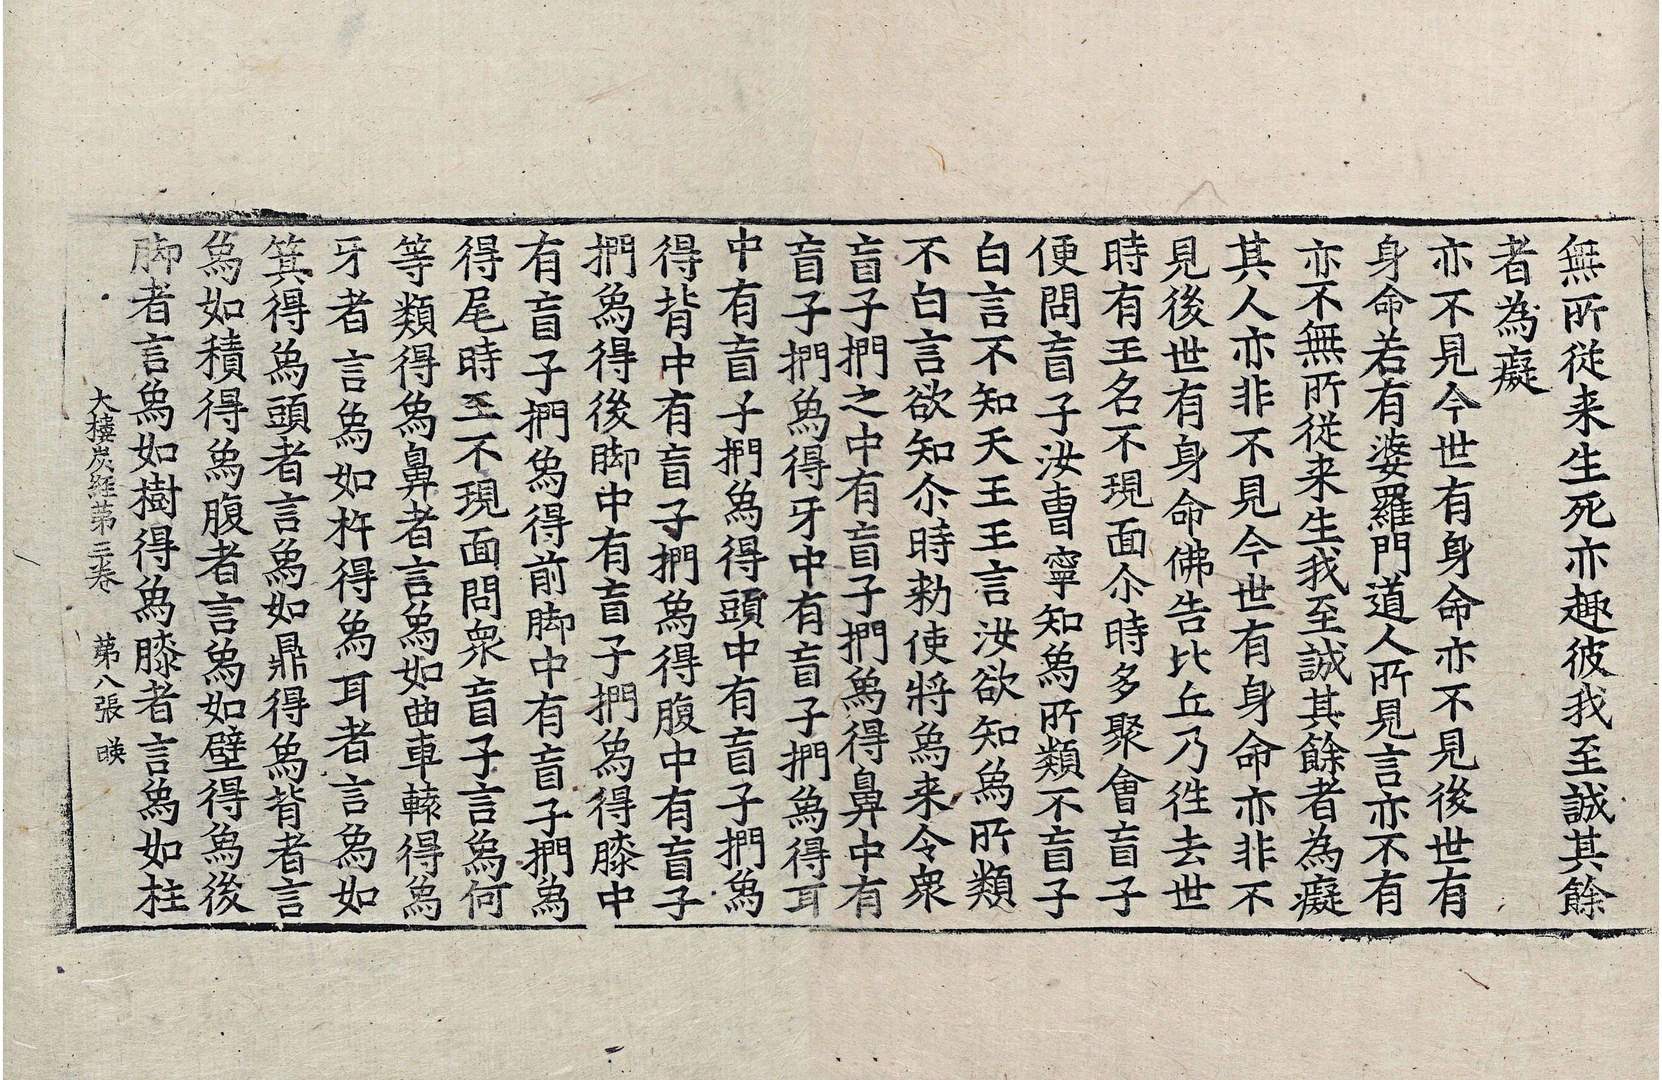 無所從来生死亦趣彼我至誠其餘
者為癡
亦不見今世有身命亦不見後世有
身命若有婆羅門道人所見言亦不有
亦不無所從来生我至誠其餘者為癡
其人亦非不見今世有身命亦非不
見後世有身命佛告比丘乃徃去世
時有王名不現面尒時多聚會盲子
便問盲子汝曹寧知為所類不盲子
白言不知天王王言汝欲知為所類
不白言欲知尒時勑使將為来令衆
盲子捫之中有盲子捫為得鼻中有
盲子捫為得牙中有盲子捫為得耳
中有盲子捫為得頭中有盲子捫為
得背中有盲子捫為得腹中有盲子
捫為得後脚中有盲子捫為得膝中
有盲子捫為得前脚中有盲子捫為
得尾時王不現面問衆盲子言為何
等類得為鼻者言為如曲車轅得為
牙者言為如杵得為耳者言為如
箕得為頭者言為如鼎得為背者言
為如積得為腹者言為如壁得為後
脚者言為如樹得為膝者言為如柱
大樓炭経第三卷 第八張 暎